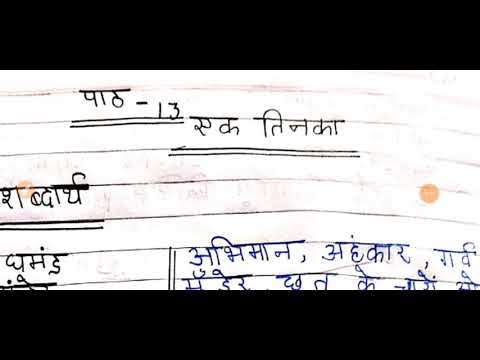 पाठ - 13
एक तिनका
शब्दार्थ
घमंड अभिमान, अहंकार, गर्व
मुँडेर छत के चारों